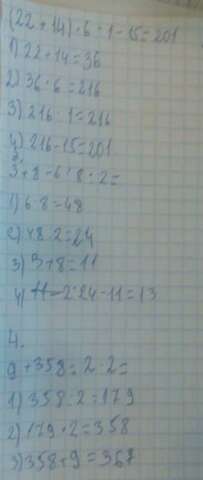 (22+14)·6:1-15=201
1) 22+14=36
2) 36·6=216
3) 216:1=216
4) 216-15=201
3+8-6·8:2=
1) 6·8=48
2) 48:2=24
3) 3+8=11
4) 24-11=13
4.
9+358:2·2=
1) 358:2=179
2) 179·2=358
3) 358+9=367